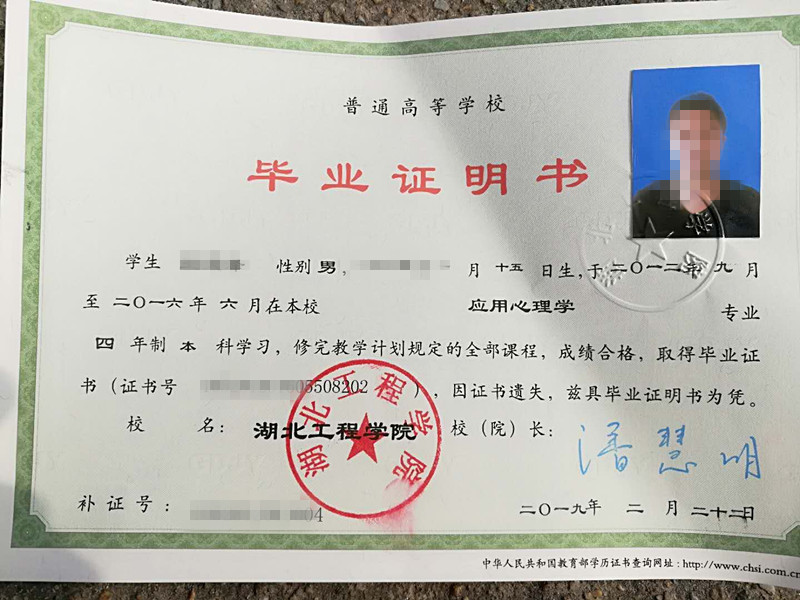 普通高等学校
毕业证明书
学生 性别 男， 月 十五 日生，于 二〇一二年 九 月
至 二〇一六年 六 月在本校 应用心理学 专业
四 年制 本 科学习，修完教学计划规定的全部课程，成绩合格，取得毕业证
书（证书号 05508202 ），因证书遗失，兹具毕业证明书为凭。
校 名： 湖北工程学院 校（院）长： 潘慧明
湖北工程学院
补证号： 04 二〇一九年 二 月 二十二日
中华人民共和国教育部学历证书查询网址：http://www.chsi.com.cn